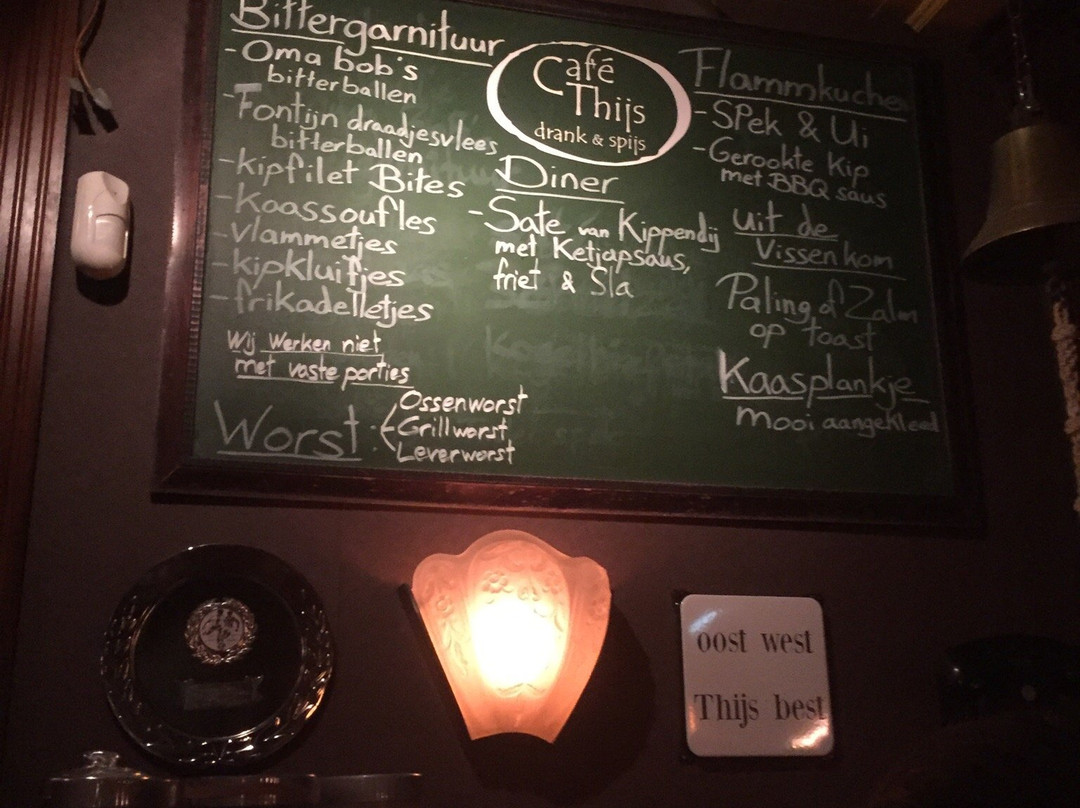 Bittergarnituur
- Oma bob's
bitterballen
- Fontijn draadjesvlees
bitterballen
- kipfilet Bites
- Kaassoufles
- vlammetjes
- kipkluifjes
- frikadelletjes
Wij werken niet
met vaste porties
Worst
Ossenworst
Grillworst
Leverworst
Café
Thijs
drank & spijs
Diner
- Sate van Kippendij
met Ketjapsaus,
friet & Sla
Flammkuchen
- Spek & Ui
- Gerookte Kip
met BBQ saus
Uit de
Vissenkom
Paling of Zalm
op toast
Kaasplankje
mooi aangekleed
oost west
Thijs best